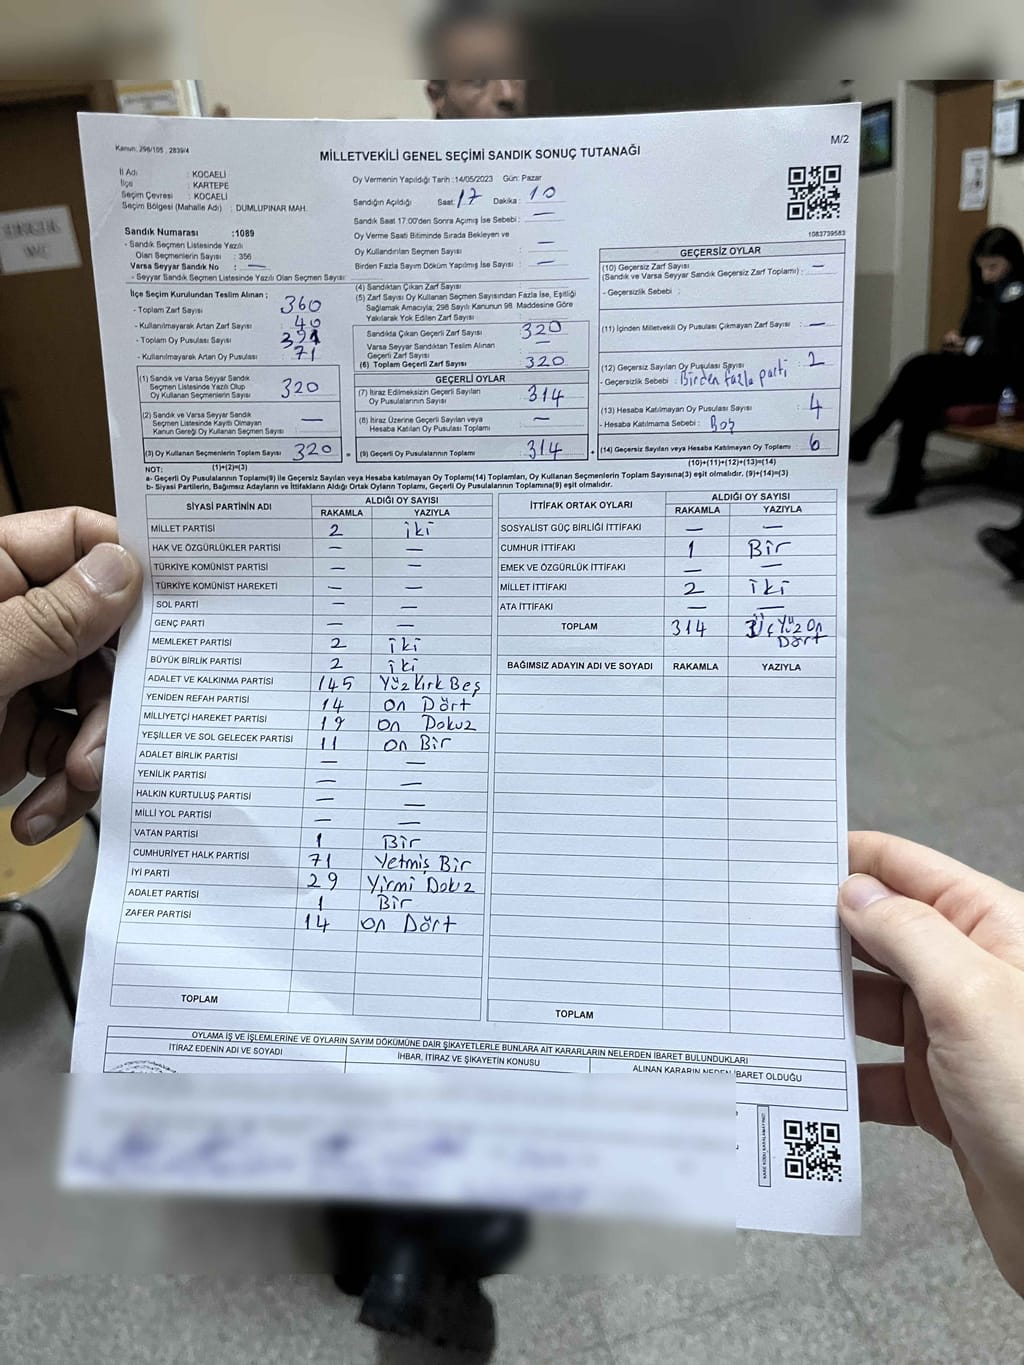 ERKEK
WC
Kanun: 298/105 , 2839/4
M/2
MİLLETVEKİLİ GENEL SEÇİMİ SANDIK SONUÇ TUTANAĞI
İl Adı : KOCAELİ
İlçe : KARTEPE
Seçim Çevresi : KOCAELİ
Seçim Bölgesi (Mahalle Adı) : DUMLUPINAR MAH.
Sandık Numarası :1089
- Sandık Seçmen Listesinde Yazılı
Olan Seçmenlerin Sayısı : 356
Varsa Seyyar Sandık No : —
- Seyyar Sandık Seçmen Listesinde Yazılı Olan Seçmen Sayısı:
Oy Vermenin Yapıldığı Tarih :14/05/2023 Gün: Pazar
Sandığın Açıldığı Saat: 17 Dakika: 10
Sandık Saat 17:00'den Sonra Açımış İse Sebebi : —
Oy Verme Saati Bitiminde Sırada Bekleyen ve
Oy Kullandırılan Seçmen Sayısı : —
Birden Fazla Sayım Döküm Yapılmış İse Sayısı : —
1083739583
İlçe Seçim Kurulundan Teslim Alınan ;
- Toplam Zarf Sayısı : 360
- Kullanılmayarak Artan Zarf Sayısı : 40
- Toplam Oy Pusulası Sayısı : 391
- Kullanılmayarak Artan Oy Pusulası : 71
(1) Sandık ve Varsa Seyyar Sandık
Seçmen Listesinde Yazılı Olup
Oy Kullanan Seçmenlerin Sayısı 320
(2) Sandık ve Varsa Seyyar Sandık
Seçmen Listesinde Kayıtlı Olmayan
Kanun Gereği Oy Kullanan Seçmen Sayısı —
(3) Oy Kullanan Seçmenlerin Toplam Sayısı 320 =
(1)+(2)=(3)
(4) Sandıktan Çıkan Zarf Sayısı :
(5) Zarf Sayısı Oy Kullanan Seçmen Sayısından Fazla İse, Eşitliği
Sağlamak Amacıyla; 298 Sayılı Kanunun 98. Maddesine Göre
Yakılarak Yok Edilen Zarf Sayısı :
Sandıkta Çıkan Geçerli Zarf Sayısı 320
Varsa Seyyar Sandıktan Teslim Alınan
Geçerli Zarf Sayısı —
(6) Toplam Geçerli Zarf Sayısı 320
GEÇERLİ OYLAR
(7) İtiraz Edilmeksizin Geçerli Sayılan
Oy Pusulalarının Sayısı 314
(8) İtiraz Üzerine Geçerli Sayılan veya
Hesaba Katılan Oy Pusulası Toplamı —
(9) Geçerli Oy Pusulalarının Toplamı 314 +
GEÇERSİZ OYLAR
(10) Geçersiz Zarf Sayısı
(Sandık ve Varsa Seyyar Sandık Geçersiz Zarf Toplamı) : —
- Geçersizlik Sebebi :
(11) İçinden Milletvekili Oy Pusulası Çıkmayan Zarf Sayısı : —
(12) Geçersiz Sayılan Oy Pusulası Sayısı : 2
- Geçersizlik Sebebi : Birden fazla parti
(13) Hesaba Katılmayan Oy Pusulası Sayısı 4
- Hesaba Katılmama Sebebi : Boş
(14) Geçersiz Sayılan veya Hesaba Katılmayan Oy Toplamı : 6
(10)+(11)+(12)+(13)=(14)
NOT:
a- Geçerli Oy Pusulalarının Toplamı(9) ile Geçersiz Sayılan veya Hesaba katılmayan Oy Toplamı(14) Toplamları, Oy Kullanan Seçmenlerin Toplam Sayısına(3) eşit olmalıdır. (9)+(14)=(3)
b- Siyasi Partilerin, Bağımsız Adayların ve İttifakların Aldığı Ortak Oyların Toplamı, Geçerli Oy Pusulalarının Toplamına(9) eşit olmalıdır.
SİYASİ PARTİNİN ADI ALDIĞI OY SAYISI
RAKAMLA YAZIYLA
MİLLET PARTİSİ 2 iki
HAK VE ÖZGÜRLÜKLER PARTİSİ — —
TÜRKİYE KOMÜNİST PARTİSİ — —
TÜRKİYE KOMÜNİST HAREKETİ — —
SOL PARTİ — —
GENÇ PARTİ — —
MEMLEKET PARTİSİ 2 iki
BÜYÜK BİRLİK PARTİSİ 2 iki
ADALET VE KALKINMA PARTİSİ 145 Yüz Kırk Beş
YENİDEN REFAH PARTİSİ 14 On Dört
MİLLİYETÇİ HAREKET PARTİSİ 19 On Dokuz
YEŞİLLER VE SOL GELECEK PARTİSİ 11 On Bir
ADALET BİRLİK PARTİSİ — —
YENİLİK PARTİSİ — —
HALKIN KURTULUŞ PARTİSİ — —
MİLLİ YOL PARTİSİ — —
VATAN PARTİSİ 1 Bir
CUMHURİYET HALK PARTİSİ 71 Yetmiş Bir
İYİ PARTİ 29 Yirmi Dokuz
ADALET PARTİSİ 1 Bir
ZAFER PARTİSİ 14 On Dört
TOPLAM
İTTİFAK ORTAK OYLARI ALDIĞI OY SAYISI
RAKAMLA YAZIYLA
SOSYALİST GÜÇ BİRLİĞİ İTTİFAKI — —
CUMHUR İTTİFAKI 1 Bir
EMEK VE ÖZGÜRLÜK İTTİFAKI — —
MİLLET İTTİFAKI 2 iki
ATA İTTİFAKI — —
TOPLAM 314 Üç Yüz On
Dört
BAĞIMSIZ ADAYIN ADI VE SOYADI RAKAMLA YAZIYLA
TOPLAM
OYLAMA İŞ VE İŞLEMLERİNE VE OYLARIN SAYIM DÖKÜMÜNE DAİR ŞİKAYETLERLE BUNLARA AİT KARARLARIN NELERDEN İBARET BULUNDUKLARI
İTİRAZ EDENİN ADI VE SOYADI İHBAR, İTİRAZ VE ŞİKAYETİN KONUSU ALINAN KARARIN NEDEN İBARET OLDUĞU
KARE KODU KARALAMAYINIZ!